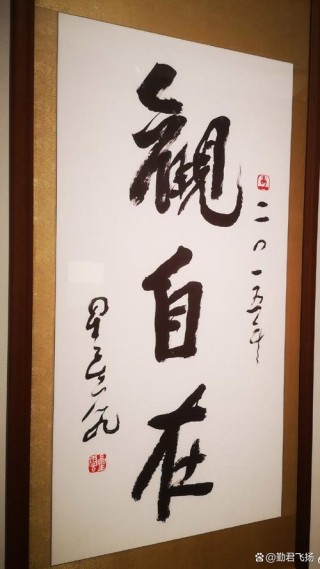 二〇一五年
觀自在
星雲
@勤君飞扬